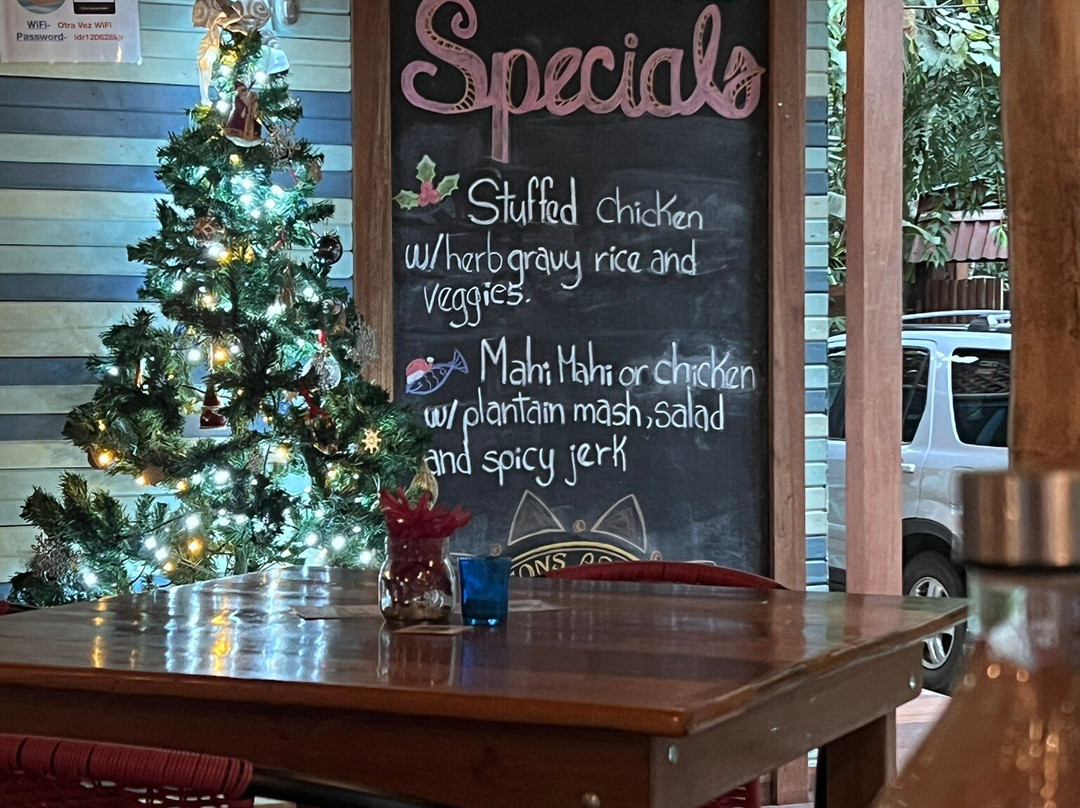 WiFi- Otra Vez WiFi
Password-
Specials
Stuffed chicken
w/herb gravy rice and
veggies.
Mahi Mahi or chicken
w/plantain mash, salad
and spicy jerk